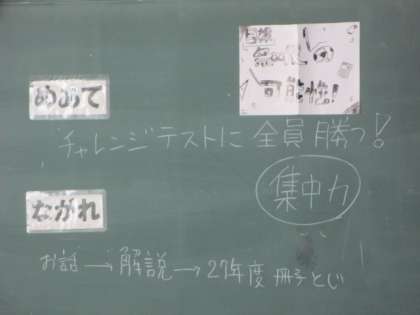 めあて
チャレンジテストに全員勝つ!
集中力
ながれ
お話→解説→27年度冊子とじ